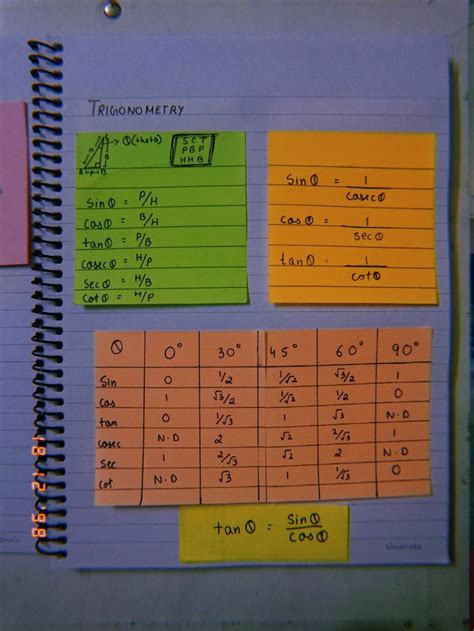 TRIGONOMETRY
θ(theta)
S C T
P B P
H H B
Sinθ = P/H
Cosθ = B/H
tanθ = P/B
Cosecθ = H/P
Secθ = H/B
Cotθ = H/P
Sinθ = 1/Cosecθ
Cosθ = 1/Secθ
tanθ = 1/Cotθ
θ 0° 30° 45° 60° 90°
Sin 0 1/2 1/√2 √3/2 1
Cos 1 √3/2 1/√2 1/2 0
tan 0 1/√3 1 √3 N.D
Cosec N.D 2 √2 2/√3 1
Sec 1 2/√3 √2 2 N.D
Cot N.D √3 1 1/√3 0
tanθ = Sinθ/Cosθ
classmate